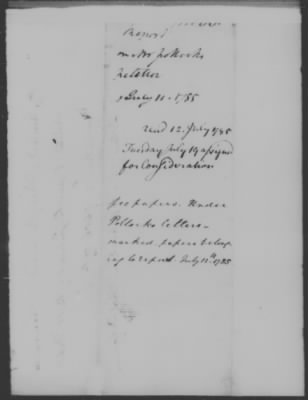 Report
on Mr Pollocks
petition
July 11 - 1785
read 12. July 1785
Tuesday July 19 assigned
for Consideration
see papers. Under
Pollocks letters -
marked papers belong
ing to report July 12th. 1785